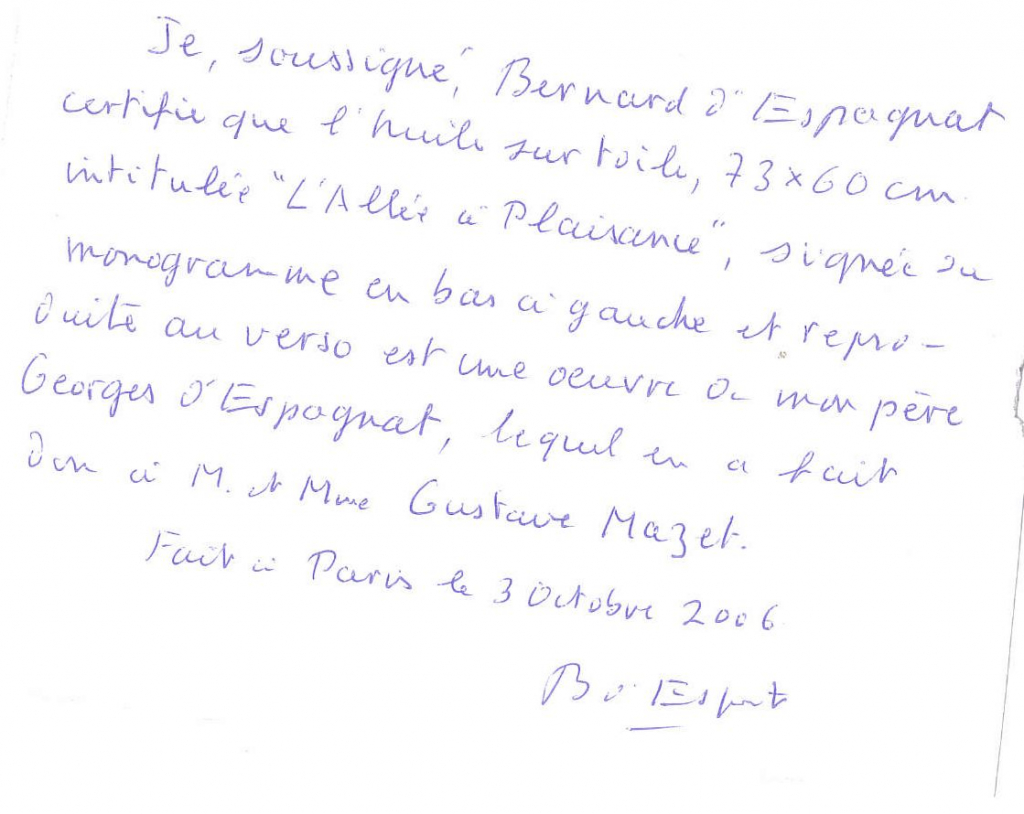 Je, soussigné, Bernard d'Espagnat
certifie que l'huile sur toile, 73×60 cm
intitulée "L'Allée à Plaisance", signée du
monogramme en bas à gauche et repro-
duite au verso est une oeuvre de mon père
Georges d'Espagnat, lequel en a fait
don à M. et Mme Gustave Mazet.
Fait à Paris le 3 Octobre 2006
B d'Espagnat